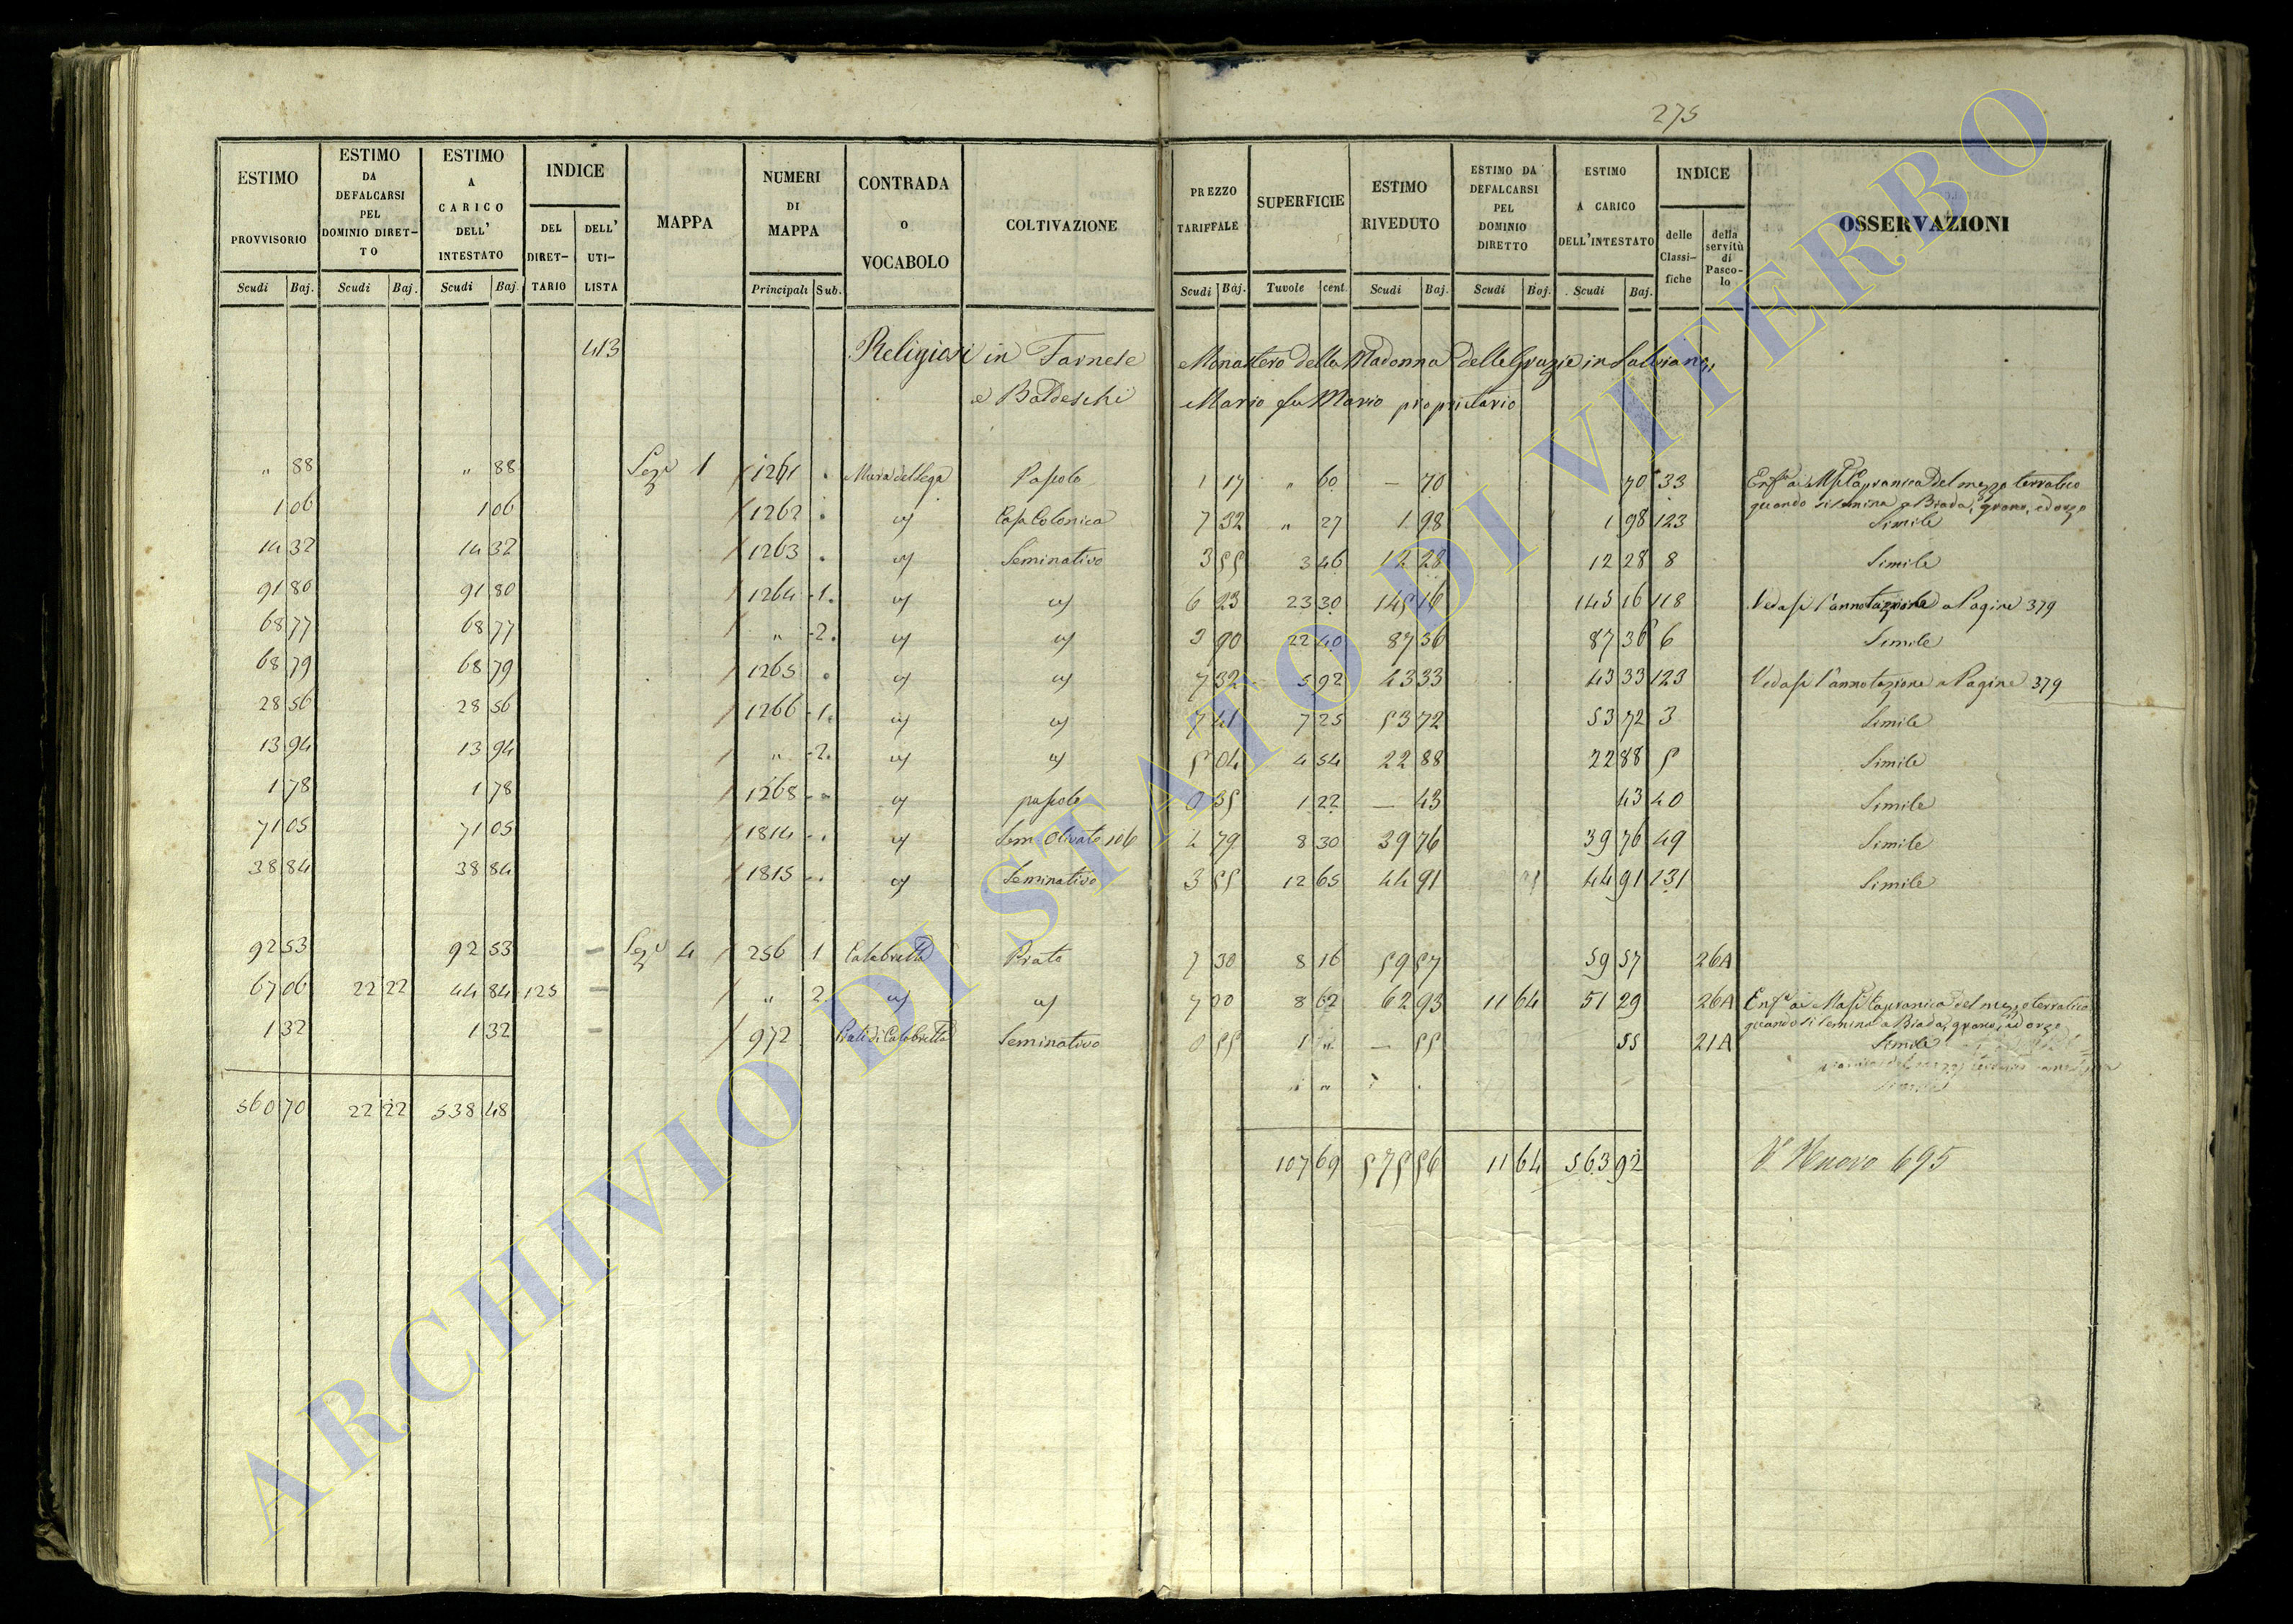 275
ESTIMO PROVVISORIO Scudi Baj.
ESTIMO DA DEFALCARSI PEL DOMINIO DIRET- TO Scudi Baj.
ESTIMO A CARICO DELL' INTESTATO Scudi Baj.
INDICE DEL DIRET- TARIO DELL' UTI- LISTA
MAPPA
NUMERI DI MAPPA Principali Sub.
CONTRADA o VOCABOLO
COLTIVAZIONE
PREZZO TARIFFALE Scudi Baj.
SUPERFICIE Tavole cent.
ESTIMO RIVEDUTO Scudi Baj.
ESTIMO DA DEFALCARSI PEL DOMINIO DIRETTO Scudi Baj.
ESTIMO A CARICO DELL'INTESTATO Scudi Baj.
INDICE delle Classi- fiche della servitù di Pasco- lo
OSSERVAZIONI
413 Religiosi in Farnese Monastero della Madonna delle Grazie in
e Baldeschi Mario fu Mario proprietario
" 88 " 88 Sezе 1 1261 Mura del Lega Pascolo 1 17 " 60 — 70 70 33 Enfa ai Capranica del mezzo terratico
quando si semina a Biada, grano, ed orzo
1 06 1 06 1262 Casa Colonica 7 32 " 27 1 98 1 98 123 Simile
14 32 14 32 1263 Seminativo 3 55 3 46 12 28 12 28 8 Simile
91 80 91 80 1264 1 6 23 23 30 145 16 145 16 118 Vedasi l'annotazione a Pagine 379
68 77 68 77 " 2 3 90 22 40 87 36 87 36 6 Simile
68 79 68 79 1265 7 32 5 92 43 33 43 33 123 Vedasi l'annotazione a Pagine 379
28 56 28 56 1266 1 7 41 7 25 53 72 53 72 3 Simile
13 94 13 94 " 2 5 04 4 54 22 88 22 88 5 Simile
1 78 1 78 1268 pascolo 0 35 1 22 — 43 43 40 Simile
71 05 71 05 1814 Sem. Olivato 106 4 79 8 30 39 76 39 76 49 Simile
38 84 38 84 1815 Seminativo 3 55 12 65 44 91 44 91 131 Simile
92 53 92 53 Seze 4 256 1 Calabretta Prato 7 30 8 16 59 57 59 57 26A
67 06 22 22 44 84 125 " 2 7 30 8 62 62 93 11 64 51 29 26A Enfa ai Capranica del mezzo terratico
quando si semina a Biada, grano, ed orzo
1 32 1 32 972 Prati di Calabretta Seminativo 0 55 1 " — 55 55 21A Simile
560 70 22 22 538 48
107 69 575 56 11 64 563 92 Vo Nuovo 695
ARCHIVIO DI STATO DI VITERBO